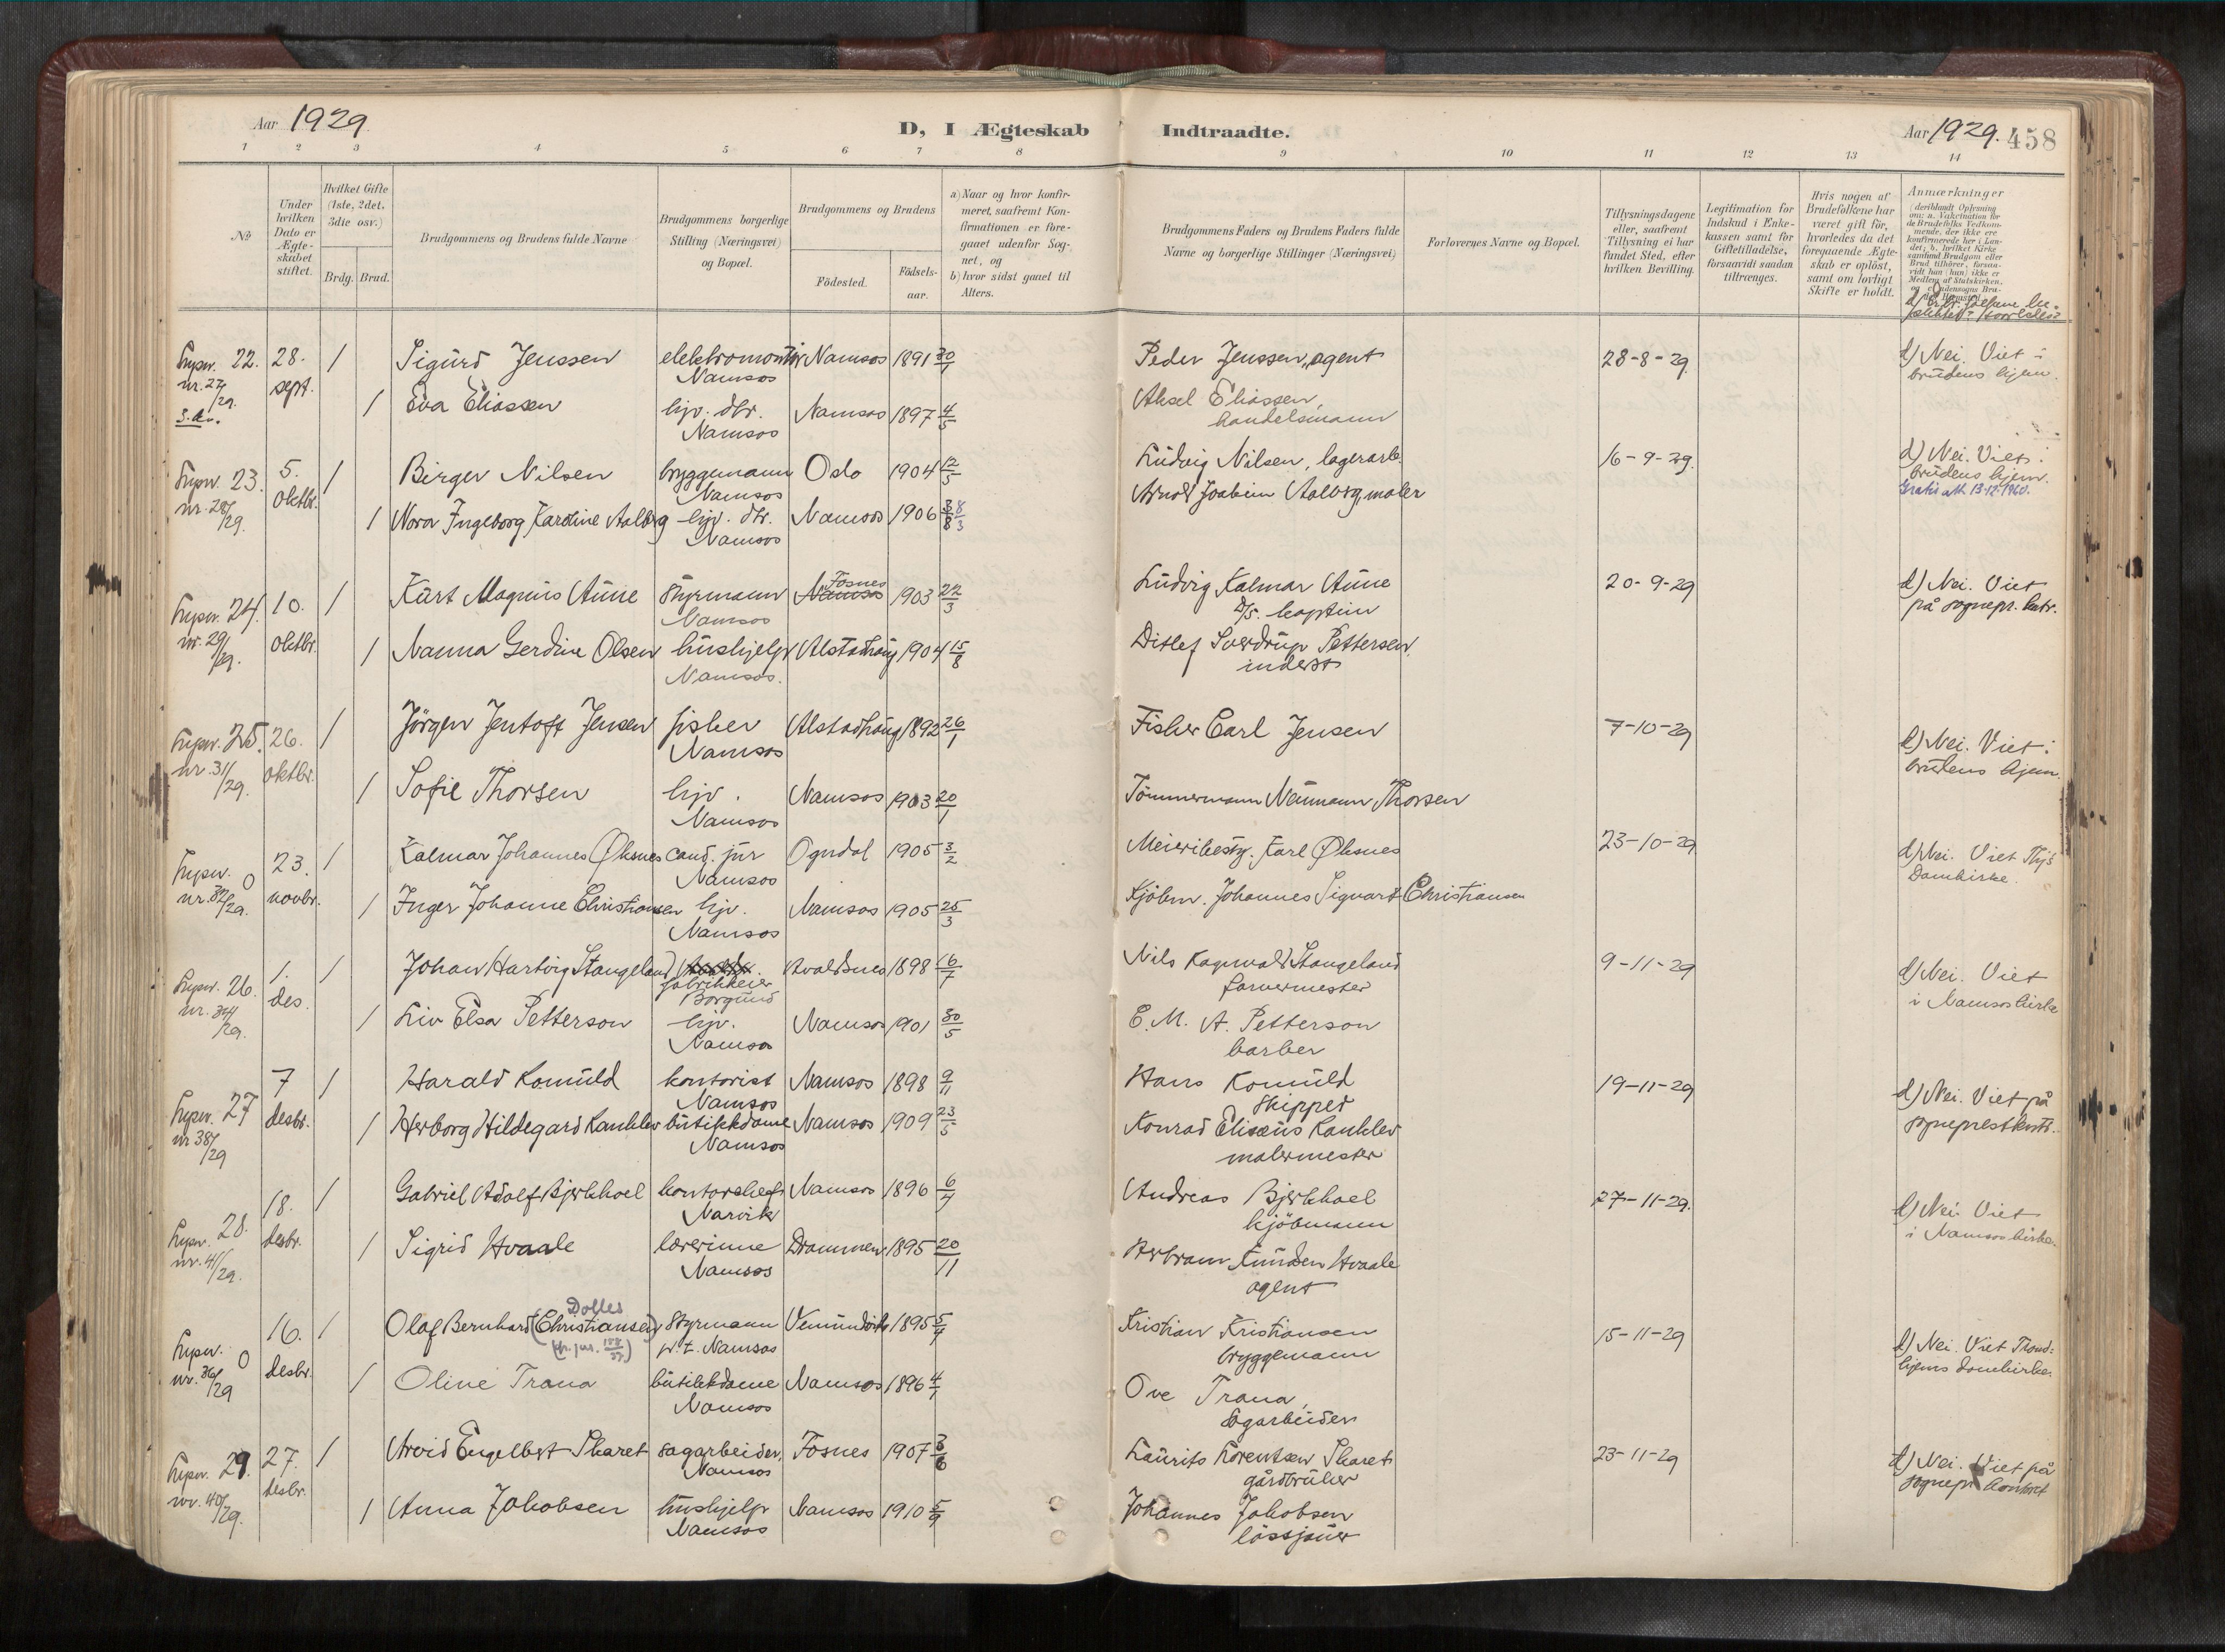 Aar 1929.
D, I Ægteskab Indtraadte.
Aar 1929. 458
1 2 3 4 5 6 7 8 9 10 11 12 13 14
No
Under hvilken Dato er Ægteskabet stiftet.
Hvilket Gifte (1ste, 2det, 3die osv.)
Brdg. Brud.
Brudgommens og Brudens fulde Navne
Brudgommens borgerlige Stilling (Næringsvei) og Bopæl.
Brudgommens og Brudens
Födested.
Födsels-aar.
a) Naar og hvor konfirmeret, saafremt Konfirmationen er foregaaet udenfor Sognet, og
b) hvor sidst gaaet til Alters.
Brudgommens Faders og Brudens Faders fulde Navne og borgerlige Stillinger (Næringsvei)
Forlovernes Navne og Bopæl.
Tillysningsdagene eller, saafremt Tillysning ei har fundet Sted, efter hvilken Bevilling.
Legitimation for Indskud i Enkekassen samt for Giftetilladelse, forsaavidt saadan tiltrænges.
Hvis nogen af Brudefolkene har været gift för, hvorledes da det foregaaende Ægteskab er oplöst, samt om lovligt Skifte er holdt.
Anmærkninger
22. 28. sept. 1 Sigurd Jenssen elektromontör Namsos Namsos 1891 30/1 Peder Jenssen, agent 28-8-29 d) Nei. Viet i brudens hjem.
nr. 27/29.
1 Eva Eliassen hjv. dtr. Namsos Namsos 1897 4/5 Aksel Eliassen, handelsmann
23. 5. oktbr. 1 Birger Nilsen bryggemann Namsos Oslo 1904 12/5 Ludvig Nilsen, lagerarb. 16-9-29. d) Nei. Viet i brudens hjem.
nr. 28/29.
1 Nora Ingeborg Karoline Aalberg hjv. dtr. Namsos Namsos 1906 8/3 Arnold Joakim Aalberg, maler
24. 10. oktbr. 1 Kurt Magnus Aune styrmann Namsos Fosnes Namsos 1903 22/3 Ludvig Kalmar Aune D/S. kaptein 20-9-29 d) Nei. Viet på sognepr. kntr.
nr. 29/29.
1 Nanna Gerdine Olsen hushjelp Namsos. Alstadhaug 1904 15/8 Ditlef Sverdrup Pettersen, inderst
25. 26. oktbr. 1 Jörgen Jentoft Jensen fisker Namsos Alstadhaug 1892 26/1 Fisker Carl Jensen 7-10-29 d) Nei. Viet i brudens hjem.
nr. 31/29.
1 Sofie Thorsen hjv. Namsos Namsos 1903 20/1 Tömmermann Neumann Thorsen
0 23. novbr. 1 Kalmar Johannes Øksnes cand. jur Namsos Ogndal 1905 3/2 Meieribesty. Karl Øksnes 23-10-29 d) Nei. Viet Thjs Domkirke.
nr. 32/29.
1 Inger Johanne Christiansen hjv. Namsos Namsos 1905 25/3 Kjöbm. Johannes Sigvart Christiansen
26. 1. des. 1 Johan Hartvig Stangeland fabrikkeier Borgund Avaldsnes 1898 16/7 Nils Ragnvald Stangeland farvermester 9-11-29 d) Nei. Viet i Namsos kirke
nr. 34/29.
1 Liv Elsa Petterson hjv. Namsos Namsos 1901 30/5 E. M. A. Petterson barber
27 7 desbr. 1 Harald Komuld kontorist Namsos Namsos 1898 9/11 Hans Komuld skipper 19-11-29 d) Nei. Viet på sogneprestkont.
nr 38/29
1 Herborg Hildegard Kankler butikkdame Namsos Namsos 1909 23/5 Konrad Elisæus Kankler malermester
28. 18. desbr. 1 Gabriel Adolf Bjerkhoel kontorchef Narvik Namsos 1896 6/4 Andreas Bjerkhoel kjöbmann 27-11-29. d) Nei. Viet i Namsos kirke.
nr. 41/29.
1 Sigrid Hvaale lærerinne Namsos Drammen 1895 20/11 Knudsen Hvaale agent
0 16. desbr. 1 Olaf Bernhard (Christiansen) Dolles styrmann p. t. Namsos Vemundvik 1895 5/4 Kristian Kristiansen bryggemann 15-11-29 d) Nei. Viet Trond-hjems domkirke.
nr. 36/29
1 Oline Trana butikkdame Namsos Namsos 1896 4/1 Ove Trana, sagarbeider
29. 27. desbr. 1 Arvid Engelbert Skaret sagarbeider, Namsos Fosnes 1907 3/6 Laurits Lorentsen Skaret gårdbruker 23-11-29 d) Nei. Viet på sognepr. kontoret
nr. 40/29.
1 Anna Jakobsen hushjelp Namsos Namsos 1910 5/9 Johannes Jakobsen lössjauer